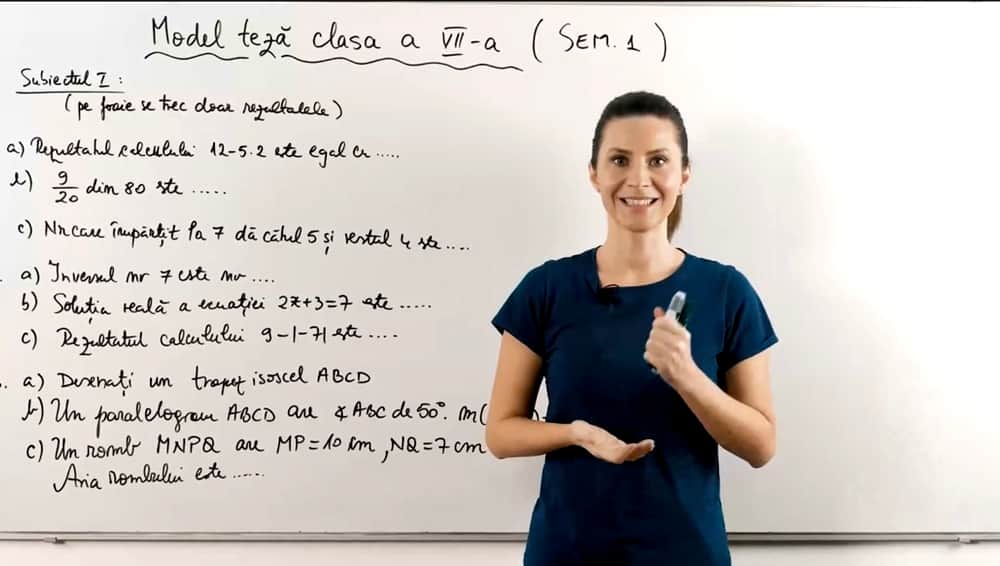 Model teză clasa a VII-a (SEM. 1)
Subiectul I:
(pe foaie se trec doar rezultatele)
a) Rezultatul calculului 12-5.2 este egal cu .....
b) 9/20 din 80 este .....
c) Nr care împărțit la 7 dă câtul 5 și restul 4 este ....
a) Inversul nr 7 este nr ....
b) Soluția reală a ecuației 2x+3=7 este .....
c) Rezultatul calculului 9-|-7| este ....
a) Desenați un trapez isoscel ABCD
b) Un paralelogram ABCD are ∢ABC de 50°. m(
c) Un romb MNPQ are MP=10 cm, NQ=7 cm
Aria rombului este ......